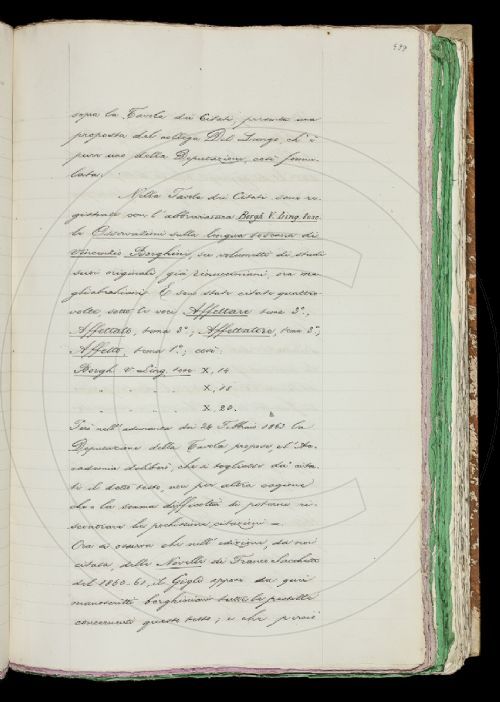 sopra la Tavola dei Citati, presenta una
proposta del collega Del Lungo, ch'è
pure uno della Deputazione, così formu-
lata:
Nella Tavola dei Citati sono re-
gistrate con l'abbreviatura Borgh. V. Ling. tosc.
le Osservazioni sulla lingua toscana di
Vincenzio Borghini, su volumetti di studi
suoi originali, già rinucciniani, ora ma-
gliabechiani. E sono state citate quattro
volte sotto le voci Affettare tema 3°.,
Affettato, tema 3°.; Affettatore, tema 3°.,
Affetto, tema 1°.; così:
Borgh. V. Ling. tosc. X, 14
" " " " X, 15
" " " " X, 20.
Però nell'adunanza dei 24 1863 la
Deputazione della Tavola propose, e l'Ac-
cademia deliberò, che si togliesse dai cita-
ti il detto testo, non per altra cagione
che la somma difficoltà di potervi ri-
scontrare le pochissime citazioni =.
Ora si osserva che nell'edizione, da noi
citata, delle Novelle di Franco Sacchetti
del 1860-61, il Gigli appose dai
manoscritti borghiniani tutte le postille
concernenti questo testo; e che perciò